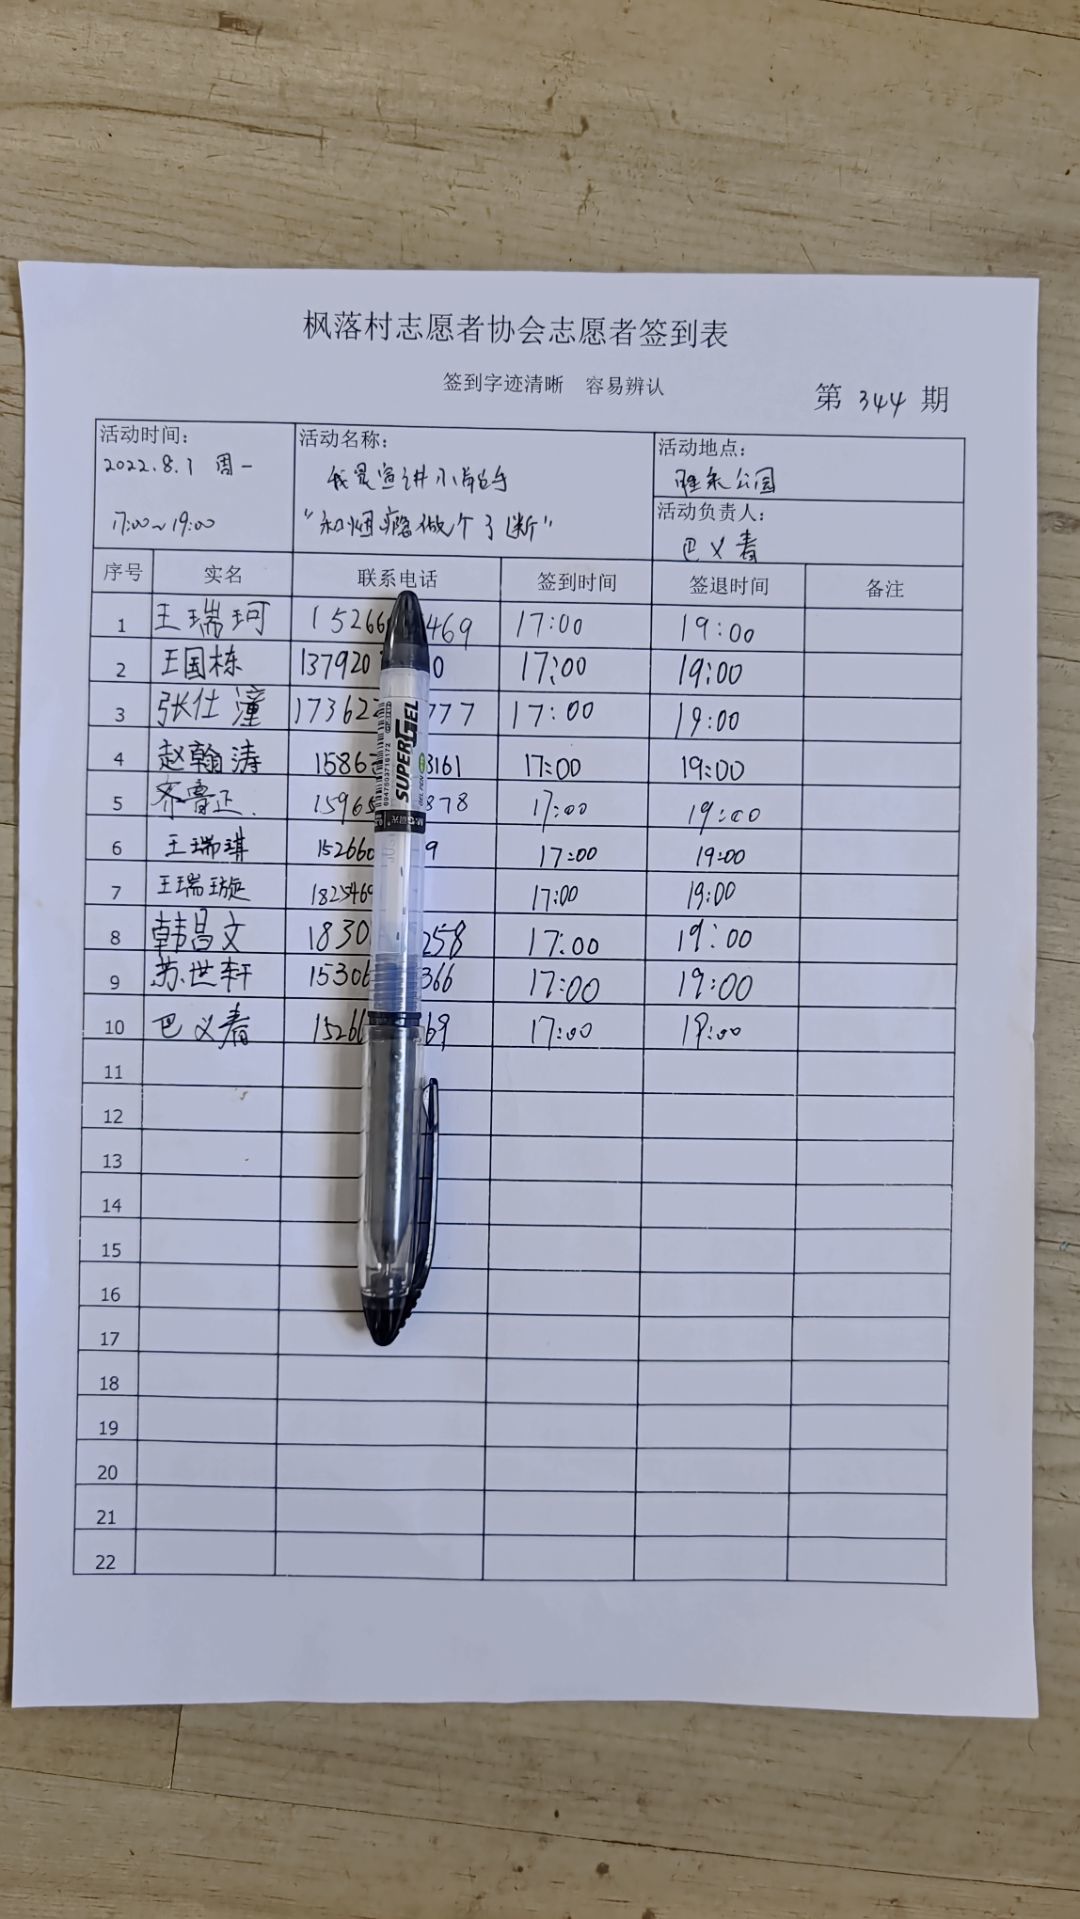 枫落村志愿者协会志愿者签到表
签到字迹清晰 容易辨认
第 344 期
活动时间: 活动名称: 活动地点:
2022.8.1 周一 我是宣讲小能手 雎泉公园
活动负责人:
17:00~19:00 “和烟瘾做个了断” 巴义春
序号 实名 联系电话 签到时间 签退时间 备注
1 王瑞珂 15266 469 17:00 19:00
2 王国栋 137920 0 17:00 19:00
3 张仕潼 17362 777 17:00 19:00
4 赵翰涛 1586 3161 17:00 19:00
5 齐鲁正. 15965 878 17:00 19:00
6 王瑞琪 152660 9 17:00 19:00
7 王瑞璇 1825469 17:00 19:00
8 韩昌文 1830 258 17:00 19:00
9 苏世轩 15306 366 17:00 19:00
10 巴义春 15266 69 17:00 19:00
11
12
13
14
15
16
17
18
19
20
21
22
SUPERGEL
GEL PEN
6947503716172
M&G晨光